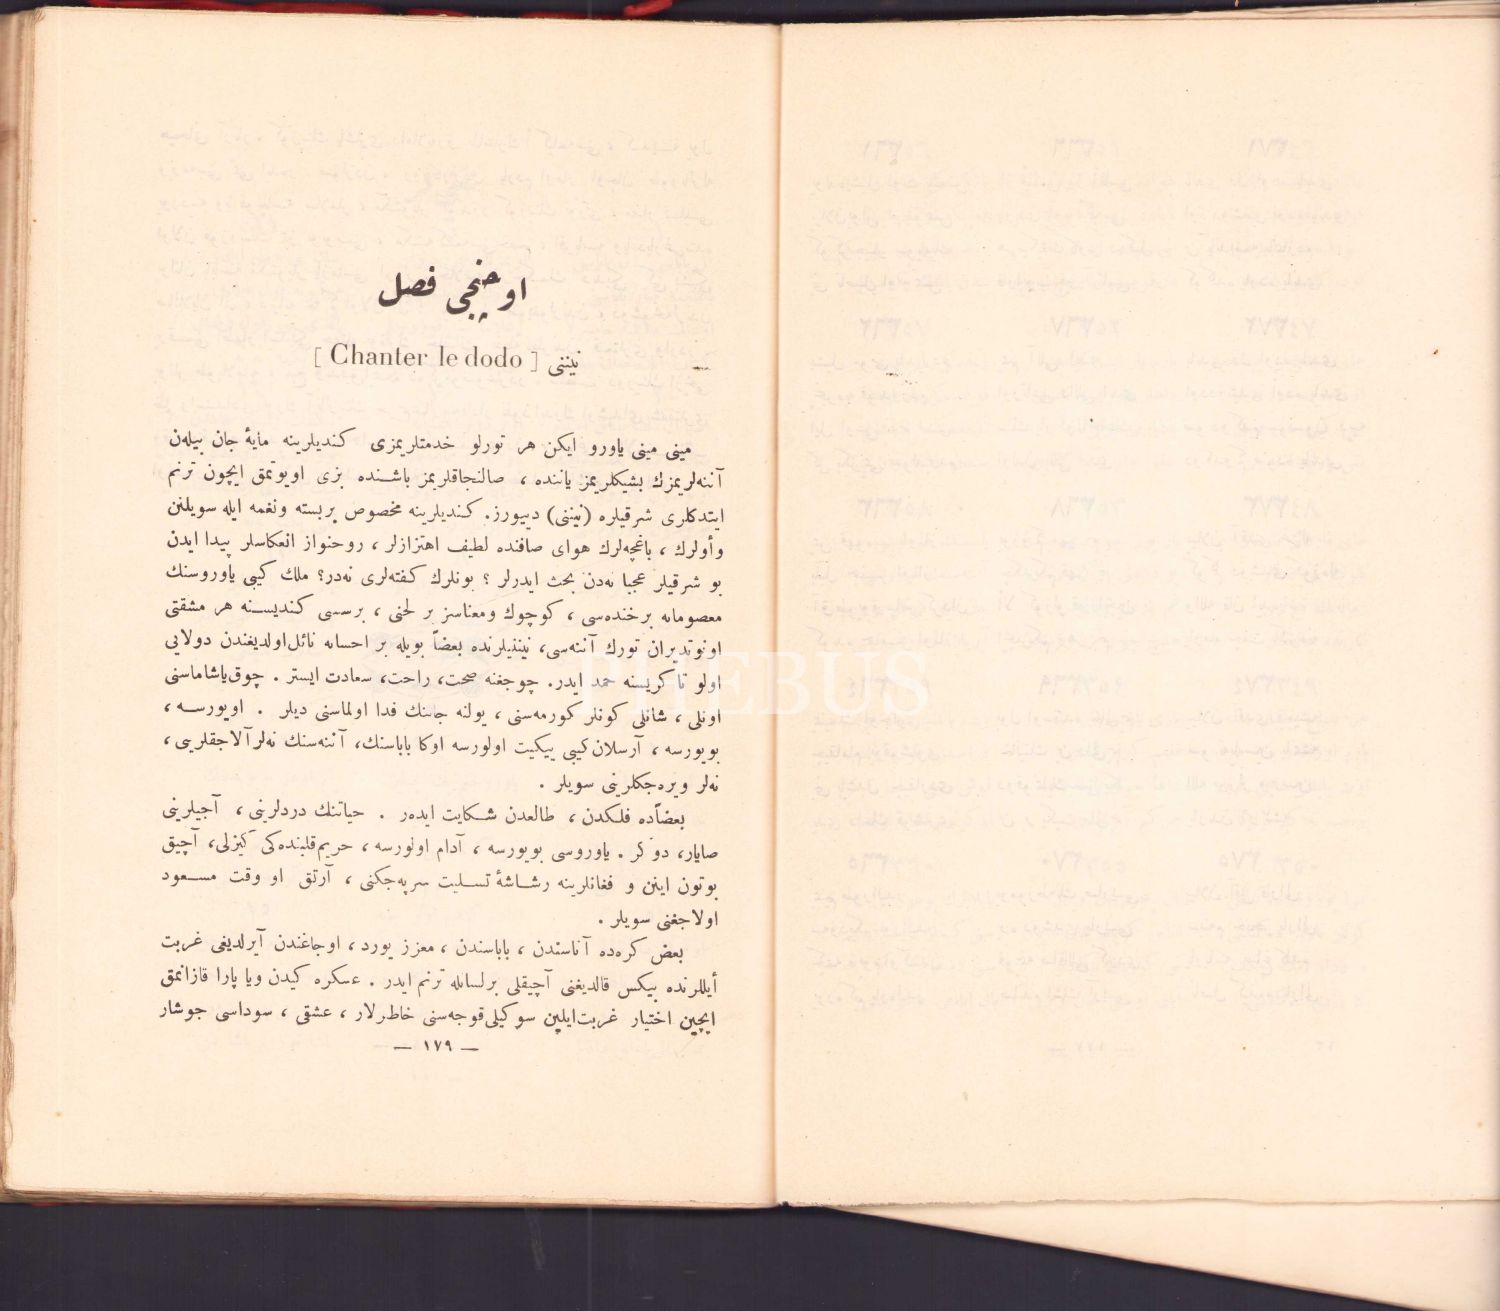 اوچنجی فصل
نیننی [ Chanter le dodo ]
مینی مینی یاورو ایکن هر تورلو خدمتلریمزی کندیلرینه مایۀ جان بیله‌ن
آننه‌لریمزك بشیکلریمز یاننده ، صالنجاقلریمز باشنده بزی اویوتمق ایچون ترنم
ایتدکلری شرقیلره (نیننی) دییورز. کندیلرینه مخصوص بربسته ونغمه ایله سویلنن
وأولرك ، باغچه‌لرك هوای صافنده لطیف اهتزازلر ، روحنواز انعکاسلر پیدا ایدن
بو شرقیلر عجبا نه‌دن بحث ایدرلر ؟ بونلرك کفته‌لری نه‌در؟ ملك کیبی یاوروسنك
معصومانه برخنده‌سی ، کوچوك ومعناسز بر لحنی ، برسسی کندیسنه هر مشقتی
اونوتدیران تورك آننه‌سی، نیننیلرنده بعضاً بویله بر احسانه نائل‌اولدیغندن دولایی
اولو تاکریسنه حمد ایدر. چوجغنه صحت، راحت، سعادت ایستر . چوق‌یاشاماسنی
اونلی ، شانلی کونلر کورمه‌سنی ، یولنه جاننك فدا اولماسنی دیلر . اویورسه ،
بویورسه ، آرسلان‌کیبی ییکیت اولورسه اوکا باباسنك، آننه‌سنك نه‌لرآلاجقلریی،
نه‌لر ویره‌جکلرینی سویلر .
بعضاًده فلکدن ، طالعدن شکایت ایده‌ر . حیاتنك دردلرینی ، آجیلرینی
صایار، دوکر . یاوروسی بویورسه ، آدام اولورسه ، حریم‌قلبنده‌کی کیزلی، آچیق
بوتون اینن و فغانلرینه رشاشۀ تسلیت سرپه‌جکنی ، آرتق او وقت مسعود
اولاجغنی سویلر .
بعض کره‌ده آناسندن ، باباسندن ، معزز یورد ، اوجاغندن آیرلدیغی غربت
أیللرنده بیکس قالدیغنی آچیقلی برلسانله ترنم ایدر . عسکره کیدن ویا پارا قازانمق
ایچین اختیار غربت‌ایلین سوکیلی‌قوجه‌سنی خاطرلار ، عشقی ، سوداسی جوشار
— ١٧٩ —
PHEBUS